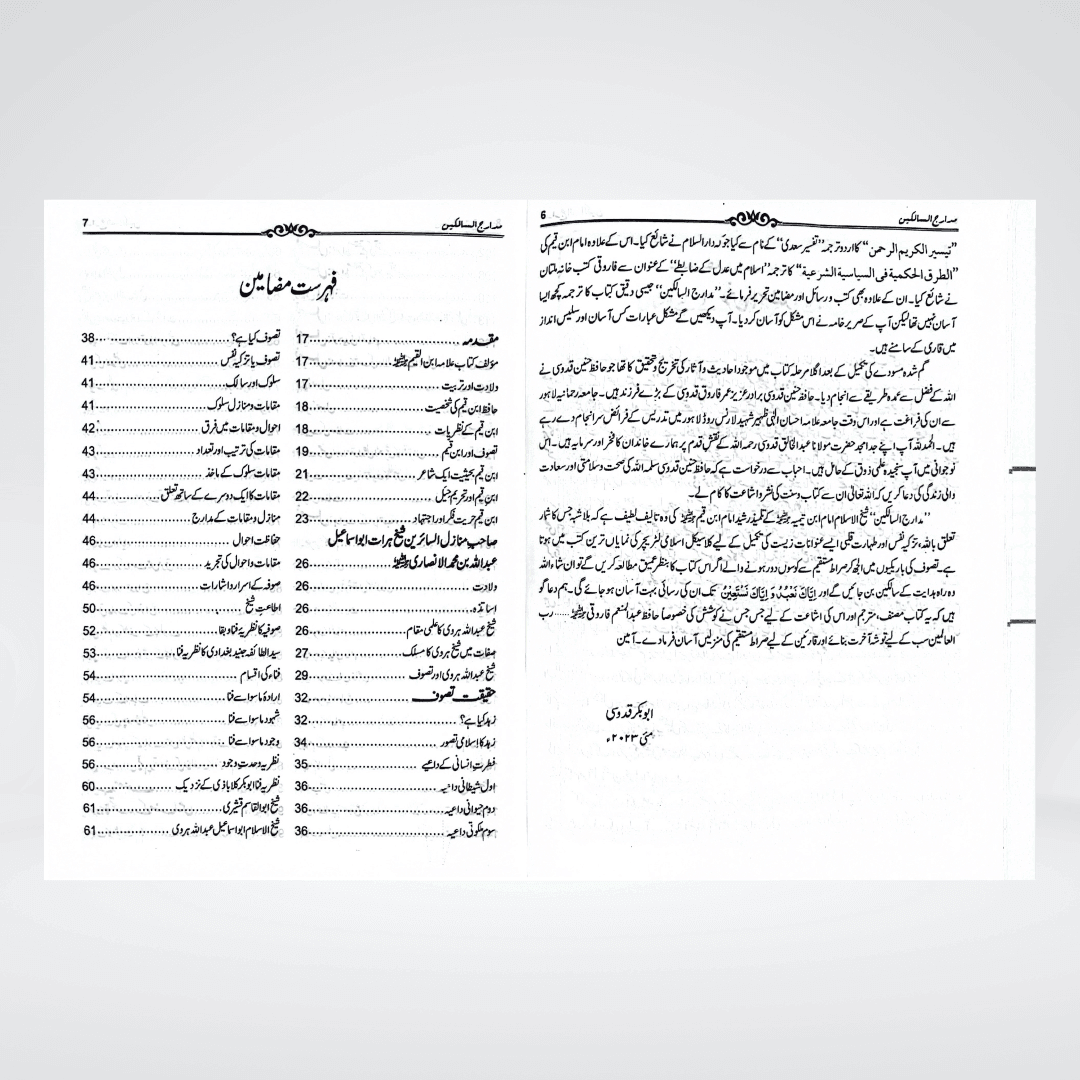 مدارج السالکین
6
"تیسیر الکریم الرحمن" کا اردو ترجمہ "تفسیر سعدی" کے نام سے کیا جو کہ دار السلام نے شائع کیا۔ اس کے علاوہ امام ابن قیم کی
"الطرق الحکمیة فی السیاسیة الشرعیة" کا ترجمہ "اسلام میں عدل کے ضابطے" کے عنوان سے فاروقی کتب خانہ ملتان
نے شائع کیا۔ ان کے علاوہ بھی کتب و رسائل اور مضامین تحریر فرمائے۔ "مدارج السالکین" جیسی دقیق کتاب کا ترجمہ کچھ ایسا
آسان نہیں تھا لیکن آپ کے صریر خامہ نے اس مشکل کو آسان کر دیا۔ آپ دیکھیں گے مشکل عبارات کس آسان اور سلیس انداز
میں قاری کے سامنے ہیں۔
گم شدہ مسودے کی تکمیل کے بعد اگلا مرحلہ کتاب میں موجود احادیث و آثار کی تخریج و تحقیق کا تھا جو حافظ حنین قدوسی نے
اللہ کے فضل سے عمدہ طریقے سے انجام دیا۔ حافظ حنین قدوسی برادر عزیز عمر فاروق قدوسی کے بڑے فرزند ہیں۔ جامعہ رحمانیہ لاہور
سے ان کی فراغت ہے اور اس وقت جامعہ علامہ احسان الٰہی ظہیر شہید لارنس روڈ لاہور میں تدریس کے فرائض سرانجام دے رہے
ہیں۔ الحمد للہ آپ اپنے جد امجد حضرت مولانا عبدالخالق قدوسی رحمہ اللہ کے نقش قدم پر ہمارے خاندان کا فخر اور سرمایہ ہیں۔ اس
نوجوانی میں آپ سنجیدہ علمی ذوق کے حامل ہیں۔ احباب سے درخواست ہے کہ حافظ حنین قدوسی سلمہ اللہ کی صحت و سلامتی اور سعادت
والی زندگی کی دعا کریں کہ اللہ تعالیٰ ان سے کتاب و سنت کی نشر و اشاعت کا کام لے۔
"مدارج السالکین" شیخ الاسلام امام ابن تیمیہ رحمہ اللہ کے تلمیذ رشید امام ابن قیم رحمہ اللہ کی وہ تالیف لطیف ہے کہ بلاشبہ جس کا شمار
تعلق باللہ، تزکیہ نفس اور طہارت قلبی ایسے عنوانات زیست کی تکمیل کے لیے کلاسیکل اسلامی لٹریچر کی نمایاں ترین کتب میں ہوتا
ہے۔ تصوف کی باریکیوں میں الجھ کر صراط مستقیم سے کوسوں دور ہونے والے اگر اس کتاب کا بنظر عمیق مطالعہ کریں گے تو ان شاء اللہ
وہ راہ ہدایت کے سالکین بن جائیں گے اور اِیَّاکَ نَعْبُدُ وَ اِیَّاکَ نَسْتَعِیْنُ تک ان کی رسائی بہت آسان ہو جائے گی۔ ہم دعا گو
ہیں کہ یہ کتاب مصنف، مترجم اور اس کی اشاعت کے لیے جس جس نے کوشش کی خصوصاً حافظ عبدالمنعم فاروقی رحمہ اللہ ...... رب
العالمین سب کے لیے توشہ آخرت بنائے اور قارئین کے لیے صراط مستقیم کی منزلیں آسان فرما دے۔ آمین
ابوبکر قدوسی
مئی ۲۰۲۳ء
مدارج السالکین
7
فہرست مضامین
مقدمہ 17
مؤلف کتاب علامہ ابن القیم رحمہ اللہ 17
ولادت اور تربیت 17
حافظ ابن قیم کی شخصیت 18
ابن قیم کے نظریات 18
تصوف اور ابن قیم 19
ابن قیم بحیثیت ایک شاعر 21
ابن قیم اور تحریم حیل 22
ابن قیم حریت فکر اور اجتہاد 23
صاحب منازل السائرین شیخ ہرات ابواسماعیل
عبداللہ بن محمد الانصاری رحمہ اللہ 26
ولادت 26
اساتذہ 26
شیخ عبداللہ ہروی کا علمی مقام 26
صفات میں شیخ ہروی کا مسلک 27
شیخ عبداللہ ہروی اور تصوف 29
حقیقت تصوف 32
زہد کیا ہے؟ 32
زہد کا اسلامی تصور 34
فطرت انسانی کے داعیے 35
اول شیطانی داعیہ 36
دوم حیوانی داعیہ 36
سوم ملکوتی داعیہ 36
تصوف کیا ہے؟ 38
تصوف یا تزکیہ نفس 41
سلوک اور سالک 41
مقامات و منازل سلوک 41
احوال و مقامات میں فرق 42
مقامات کی ترتیب اور تعداد 43
مقامات سلوک کے ماخذ 43
مقامات کا ایک دوسرے کے ساتھ تعلق 44
منازل و مقامات کے مدارج 44
حفاظت احوال 46
مقامات و احوال کی تجرید 46
صوفیہ کے اسرار و اشارات 46
اطاعت شیخ 50
صوفیہ کا نظریہ فنا و بقا 52
سید الطائفہ جنید بغدادی کا نظریہ فنا 53
فناء کی اقسام 54
ارادۂ ماسوا سے فنا 54
شہود ماسوا سے فنا 56
وجود ماسوا سے فنا 56
نظریہ وحدت وجود 56
نظریہ فنا ابوبکر کلاباذی کے نزدیک 60
شیخ ابوالقاسم قشیری 61
شیخ الاسلام ابواسماعیل عبداللہ ہروی 61